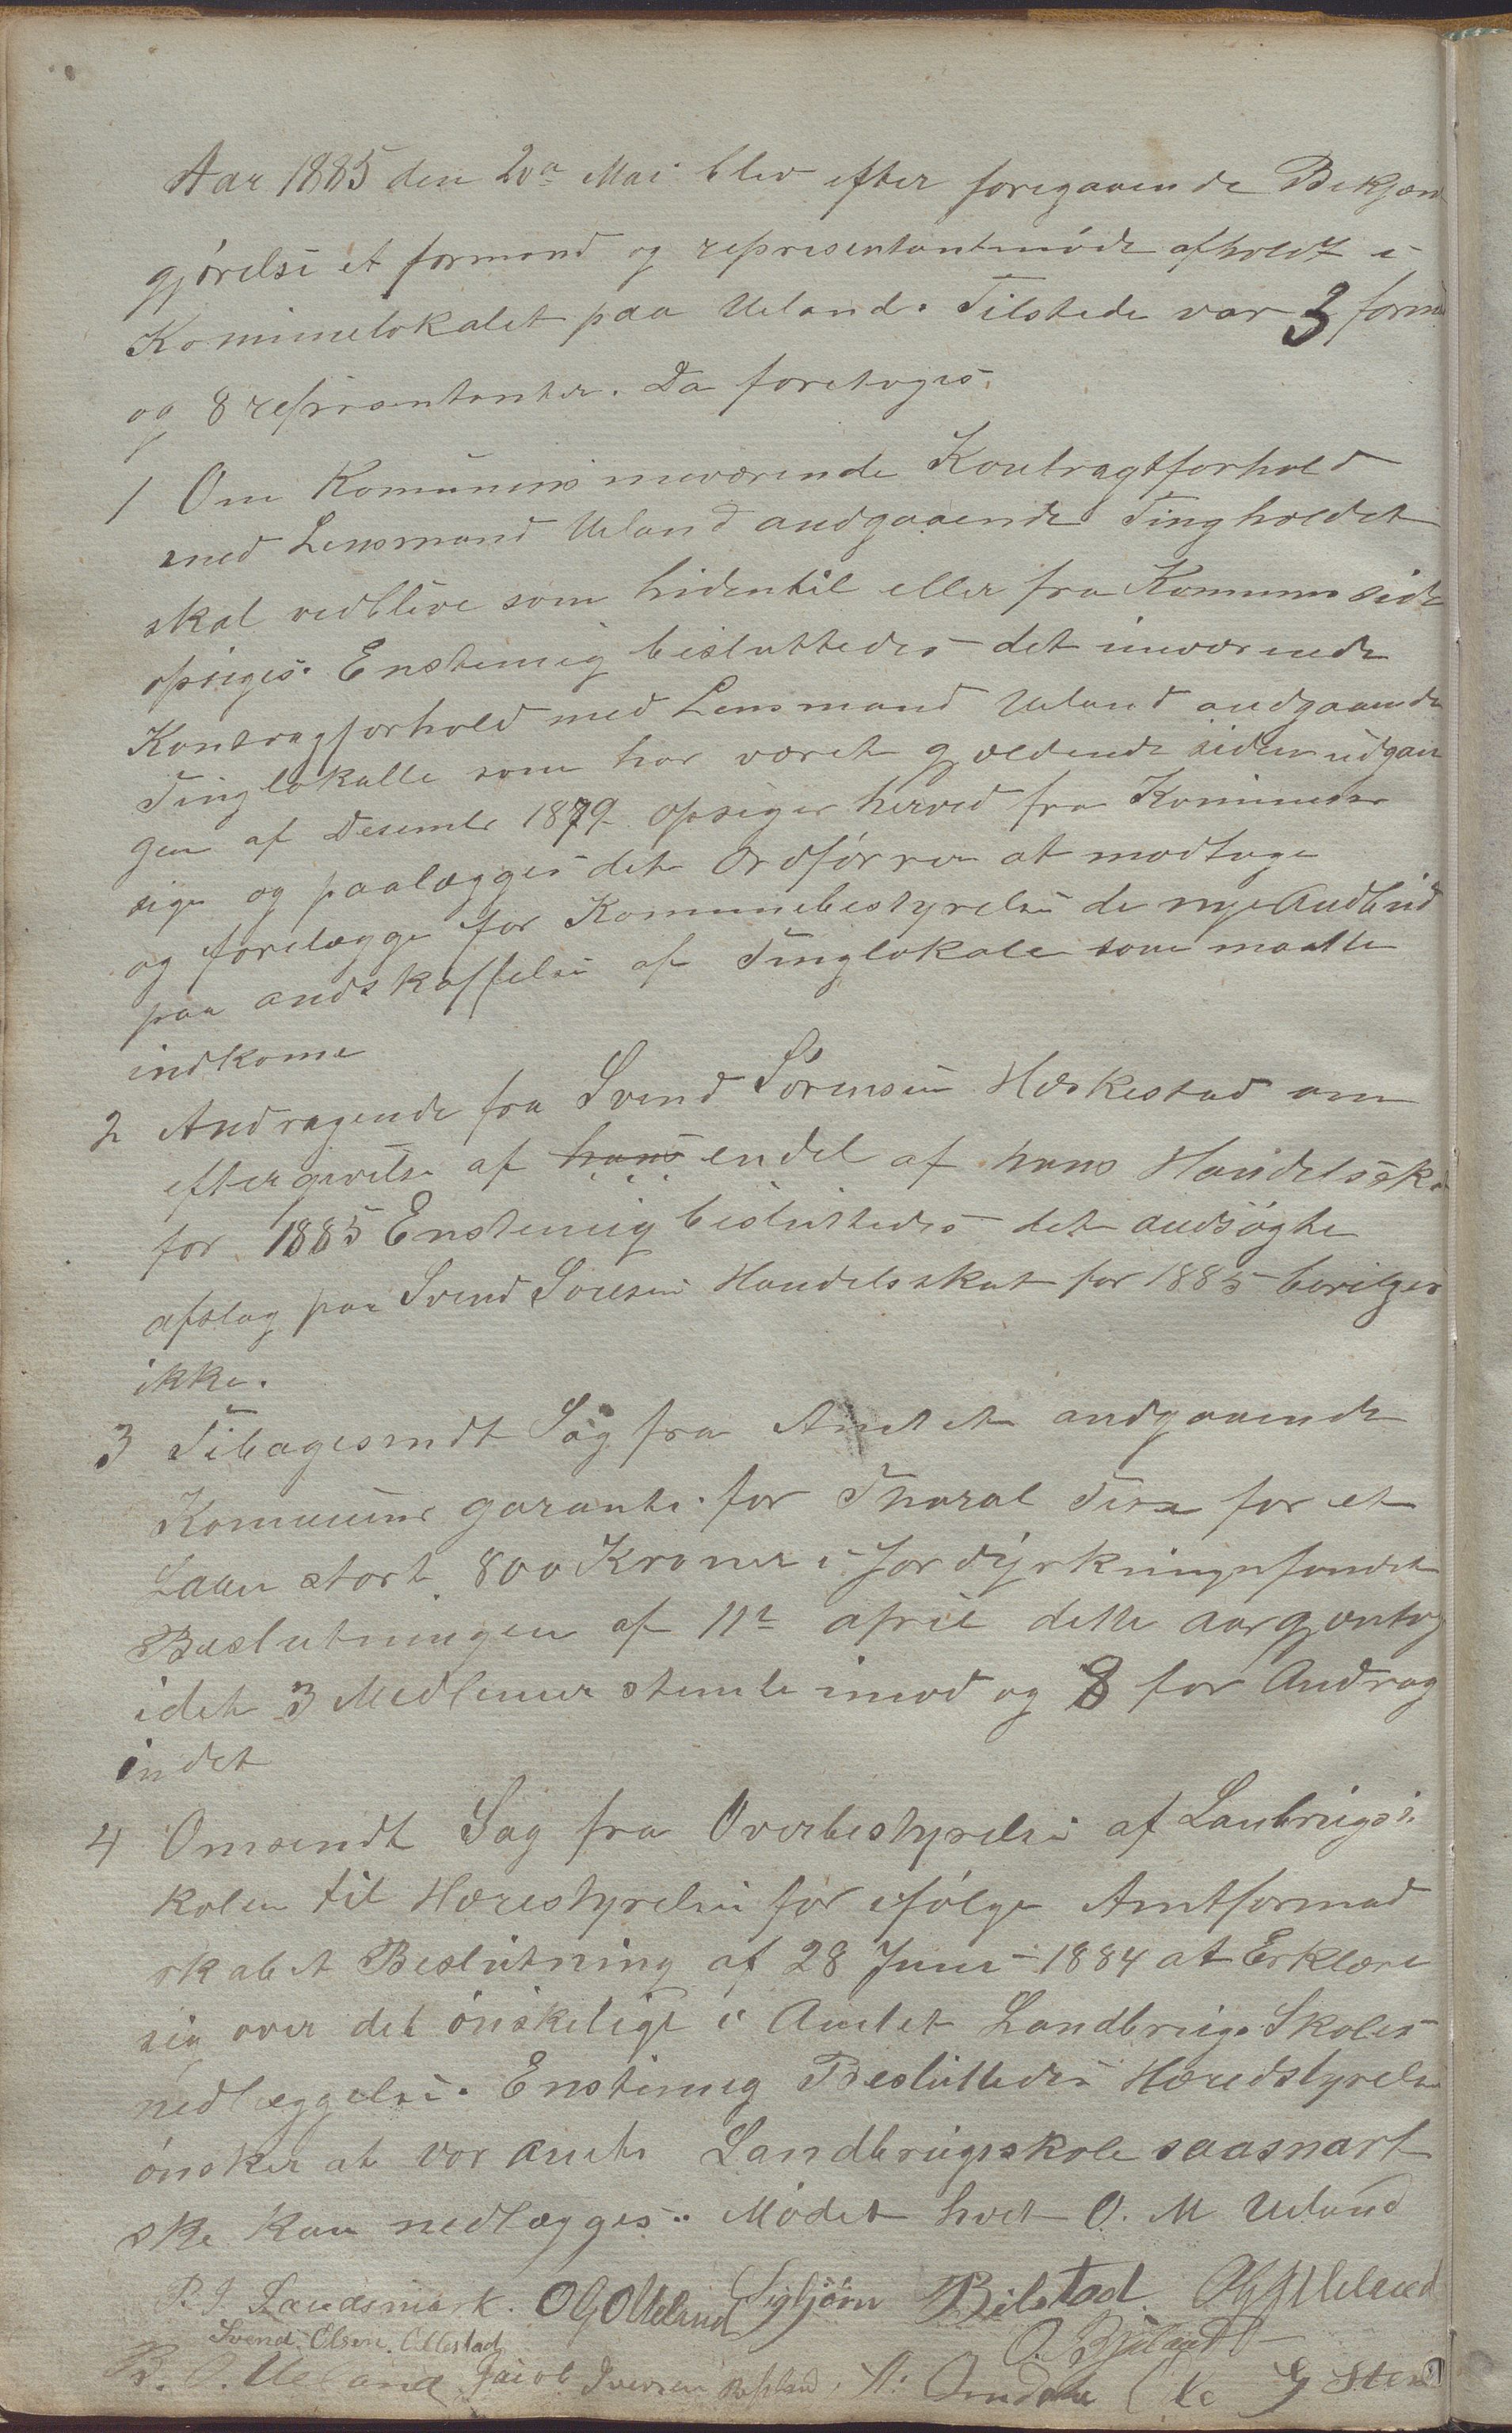 Aar 1885 den 20de Mai blev efter foregaaende Bekjæn
gjørelse et formand og representantmøde afholdt i
Kommunelokalet paa Ueland. Tilstede var 3 form
og 8 representanter. Da foretoges.
1 Om Komunens inværende Kontragtforhold
med Lensmand Ueland andgaaende Tingholdet
skal vedblive som hidentil eller fra Komunens side
opsiges. Enstemig besluttedes det inværende
Kontragforhold med Lensmand Ueland andgaaende
Tinglokalle som har været gjældende siden udgan
gen af Desember 1879 opsiges herved fra Komunens
side og paalægges det Ordførren at modtage
og forelægge for Komunebestyrelse de nye Andbud
paa andskaffelse af Tinglokale som maatte
indkome
2 Andragende fra Svend Sørensen Heskestad om
eftergivelse af hans endel af hans Handelsska
for 1885 Enstemig besluttedes det andsøgte
afslag paa Svend Sørensen Handelsskat for 1885 beviges
ikke.
3 Tilbagesendt Sag fra Amtet andgaaende
Komunens garanti for Tharal Tesa for et
Laan stort 800 Kroner i Jordyrkningsfondet
Beslutningen af 11te april dette aar gjentog
idet 3 Medlemer stemte imod og 8 for Andrag
indet
4 Omsendt Sag fra Overbestyrelse af Lanbrugss
kolen til Herestyrelsen for efølge Amtformad
skabet Beslutning af 28 Juni 1884 at Erklære
sig over det ønskelige i Amtet Landbrugs Skoles
nedlæggelse. Enstemig Besluttedes Heredstyrelse
ønsker at vor Amts Landbrugsskole saasnart
ske kan nedlægges. Mødet hvet O. M Ueland
P. J. Landsmark. O G Ueland Sigbjørn Bilstad. O G Ueland
Svend Olsen Ollestad O. Bjelland
B. O. Ueland Jacob Iversen Refsland, A: Omdal